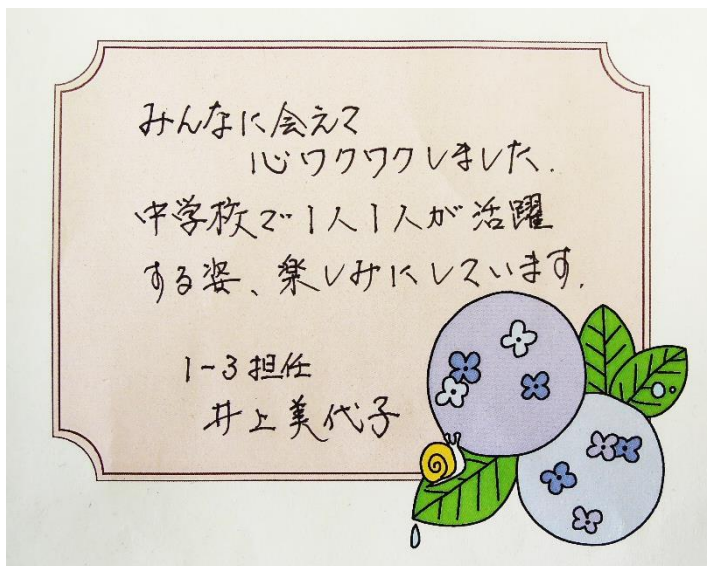 みんなに会えて
心ワクワクしました.
中学校で1人1人が活躍
する姿、楽しみにしています.
1-3担任
井上美代子